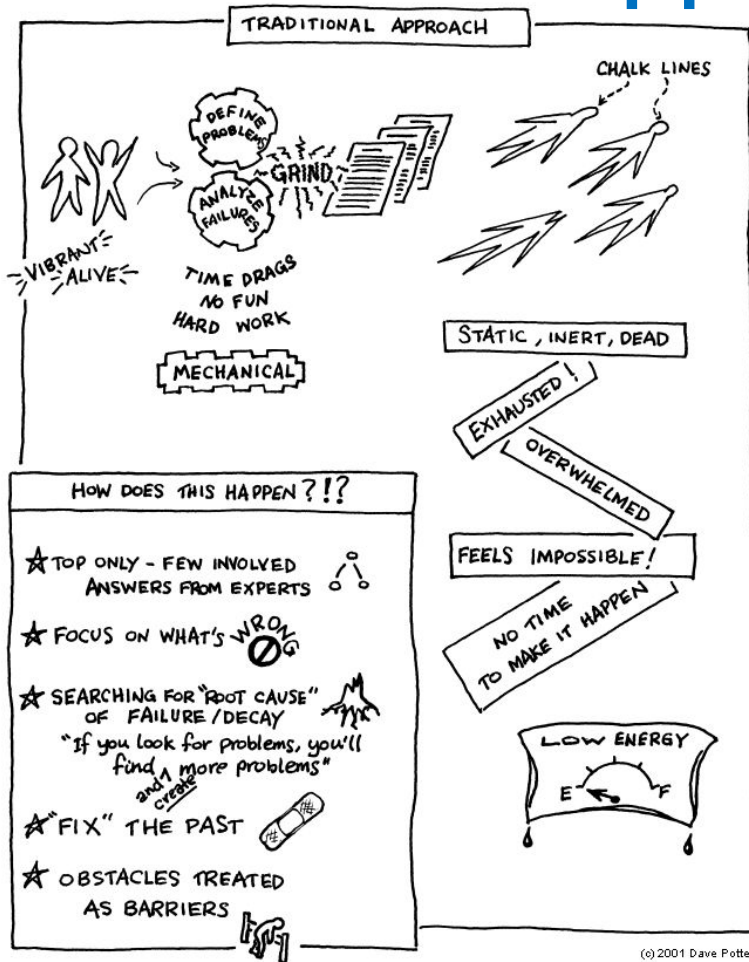 TRADITIONAL APPROACH
CHALK LINES
DEFINE
PROBLEMS
GRIND
ANALYZE
FAILURES
VIBRANT
ALIVE
TIME DRAGS
NO FUN
HARD WORK
MECHANICAL
STATIC, INERT, DEAD
EXHAUSTED!
OVERWHELMED
FEELS IMPOSSIBLE!
NO TIME
TO MAKE IT HAPPEN
LOW ENERGY
E F
HOW DOES THIS HAPPEN?!?
TOP ONLY - FEW INVOLVED
ANSWERS FROM EXPERTS
FOCUS ON WHAT'S WRONG
SEARCHING FOR "ROOT CAUSE"
OF FAILURE/DECAY
"If you look for problems, you'll
find more problems"
and create
"FIX" THE PAST
OBSTACLES TREATED
AS BARRIERS
(c) 2001 Dave Potte